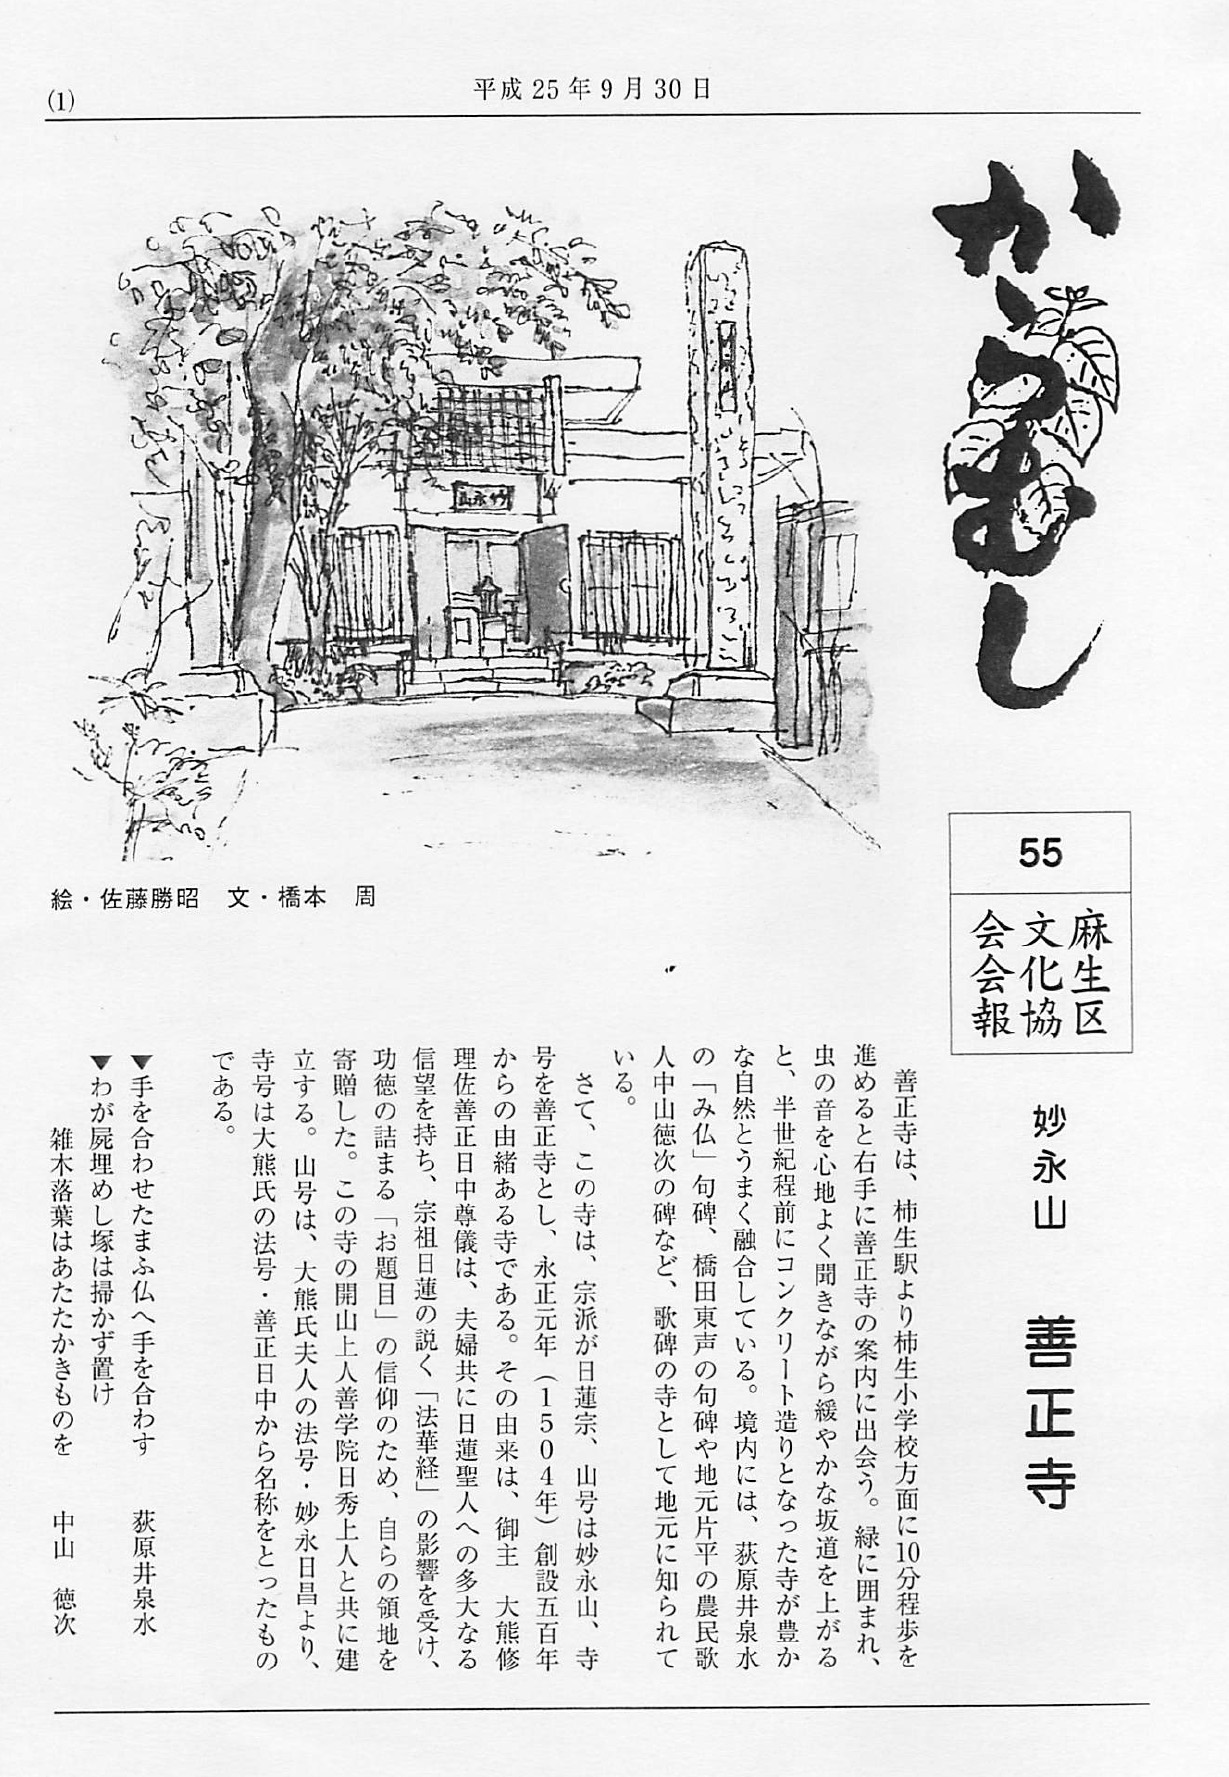 (1)
平成25年9月30日
からむし
55
麻生区
文化協
会会報
妙永山 善正寺
絵・佐藤勝昭 文・橋本 周
妙永山
善正寺は、柿生駅より柿生小学校方面に10分程歩を
進めると右手に善正寺の案内に出会う。緑に囲まれ、
虫の音を心地よく聞きながら緩やかな坂道を上がる
と、半世紀程前にコンクリート造りとなった寺が豊か
な自然とうまく融合している。境内には、荻原井泉水
の「み仏」句碑、橋田東声の句碑や地元片平の農民歌
人中山徳次の碑など、歌碑の寺として地元に知られて
いる。
さて、この寺は、宗派が日蓮宗、山号は妙永山、寺
号を善正寺とし、永正元年（1504年）創設五百年
からの由緒ある寺である。その由来は、御主 大熊修
理佐善正日中尊儀は、夫婦共に日蓮聖人への多大なる
信望を持ち、宗祖日蓮の説く「法華経」の影響を受け、
功徳の詰まる「お題目」の信仰のため、自らの領地を
寄贈した。この寺の開山上人善学院日秀上人と共に建
立する。山号は、大熊氏夫人の法号・妙永日昌より、
寺号は大熊氏の法号・善正日中から名称をとったもの
である。
▼手を合わせたまふ仏へ手を合わす 荻原井泉水
▼わが屍埋めし塚は掃かず置け
雑木落葉はあたたかきものを 中山 徳次